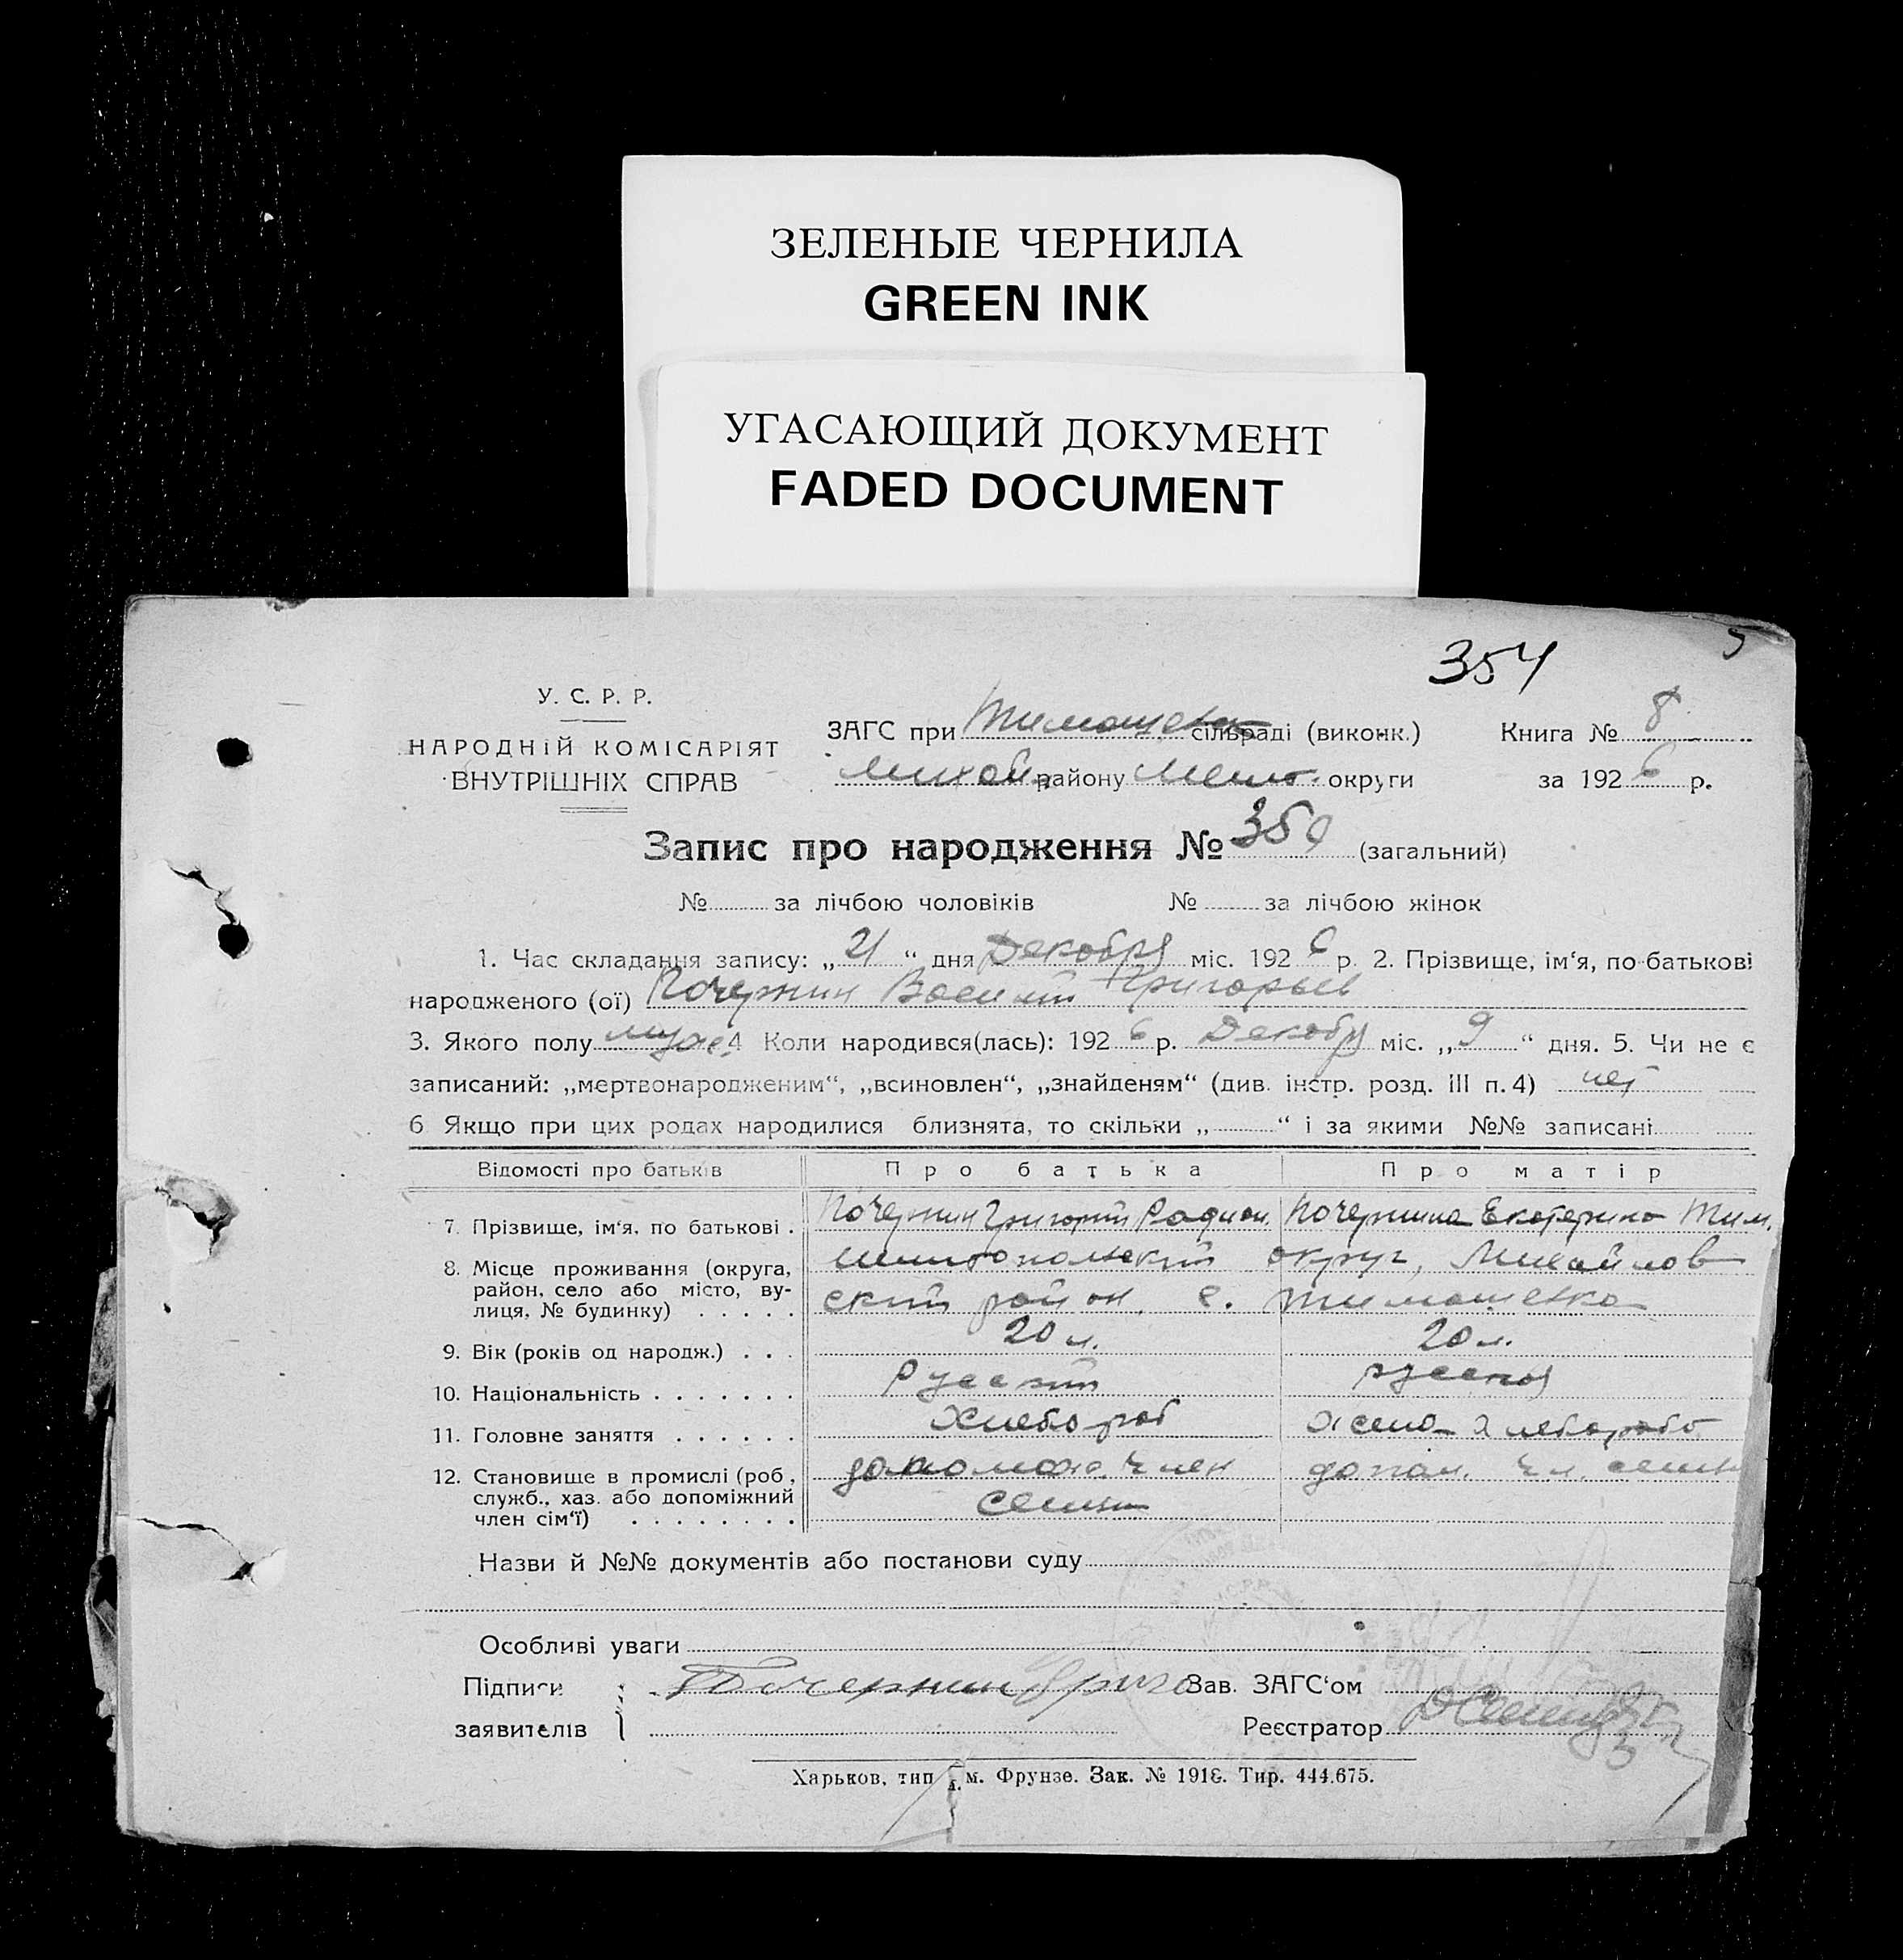 ЗЕЛЕНЫЕ ЧЕРНИЛА
GREEN INK
УГАСАЮЩИЙ ДОКУМЕНТ
FADED DOCUMENT
354
У. С. Р. Р.
НАРОДНІЙ КОМІСАРІЯТ
ВНУТРІШНІХ СПРАВ
ЗАГС при Тимошевк сільраді (виконк.) Книга № 8
Михай району Мелит. округи за 1926 р.
Запис про народження № 354 (загальний)
№ за лічбою чоловіків № за лічбою жінок
1. Час складання запису: „21“ дня Декабря міс. 1926 р. 2. Прізвище, ім‘я, по батькові
народженого (ої) Кочержин Василий Григорьев
3. Якого полу муж. 4 Коли народився(лась): 1926 р. Декабр міс. „9“ дня. 5. Чи не є
записаний: „мертвонародженим“, „всиновлен“, „знайденям“ (див. інстр. розд. III п. 4) нет
6 Якщо при цих родах народилися близнята, то скільки „ “ і за якими №№ записані
Відомості про батьків Про батька Про матір
7. Прізвище, ім‘я, по батькові . Кочержин Григорий Радион. Кочержина Екатерина Тим.
8. Місце проживання (округа, Мелитопольский округ, Михайлов
район, село або місто, ву- ский район, с. Тимошевка
лиця, № будинку) . . . . .
9. Вік (років од народж.) . . . 20 л. 20 л.
10. Національність . . . . . . . Русский русская
11. Головне заняття . . . . . . Хлебороб жена хлебороба
12. Становище в промислі (роб., допомож. член допом. чл. семьи
служб., хаз. або допоміжний семьи
член сім‘ї) . . . . . . . .
Назви й №№ документів або постанови суду
Особливі уваги
Підписи Кочержин Григо Зав. ЗАГС‘ом
заявителів Реєстратор
Харьков, тип. ім. Фрунзе. Зак. № 1918. Тир. 444.675.